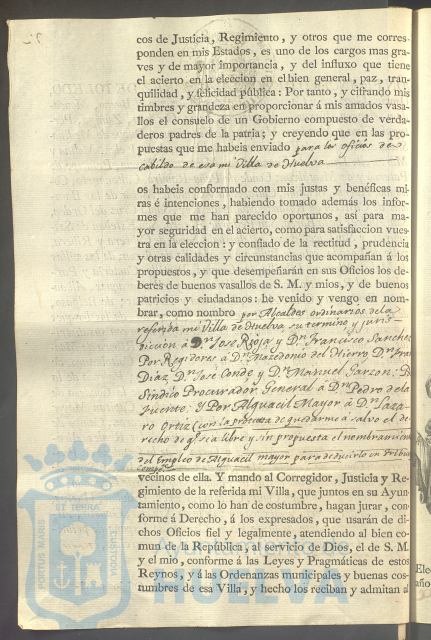 cos de Justicia, Regimiento, y otros que me corres-
ponden en mis Estados, es uno de los cargos mas gra-
ves y de mayor importancia, y del influxo que tiene
el acierto en la eleccion en el bien general, paz, tran-
quilidad, y felicidad pública: Por tanto, y cifrando mis
timbres y grandeza en proporcionar á mis amados vasa-
llos el consuelo de un Gobierno compuesto de verda-
deros padres de la patria; y creyendo que en las pro-
puestas que me habeis enviado para los oficios de
Cabildo de esa mi Villa de Huelva
os habeis conformado con mis justas y benéficas mi-
ras é intenciones, habiendo tomado además los infor-
mes que me han parecido oportunos, así para ma-
yor seguridad en el acierto, como para satisfaccion vues-
tra en la eleccion: y confiado de la rectitud, prudencia
y otras calidades y circunstancias que acompañan á los
propuestos, y que desempeñarán en sus Oficios los de-
beres de buenos vasallos de S. M. y mios, y de buenos
patricios y ciudadanos: he venido y vengo en nom-
brar, como nombro por Alcaldes ordinarios de la
referida mi Villa de Huelva su termino y juris-
diccion á Dn. José Rioja y Dn. Francisco Sanchez
Por Regidores á Dn. Mazedonio del Hierro Dn. Fran
Diaz, Dn. José Conde y Dn. Manuel Garzon: P
Sindico Procurador General á Dn. Pedro de la
Fuente: Y Por Alguacil Mayor á Dn. Laza-
ro Ortiz (con la protexta de quedarme á salvo el de-
recho de libre y sin propuesta el nombramien
del Empleo de Alguacil mayor para deducirlo en
vecinos de ella. Y mando al Corregidor, Justicia y Re-
gimiento de la referida mi Villa, que juntos en su Ayun-
tamiento, como lo han de costumbre, hagan jurar, con-
forme á Derecho, á los expresados, que usarán de di-
chos Oficios fiel y legalmente, atendiendo al bien co-
mun de la República, al servicio de Dios, el de S. M.
y el mio, conforme á las Leyes y Pragmáticas de estos
Reynos, y á las Ordenanzas municipales y buenas cos-
tumbres de esa Villa, y hecho los reciban y admitan al
Ele
año
PORTUS MARIS
ET TERRAE
CUSTODIA
Ayuntamiento de
HUELVA